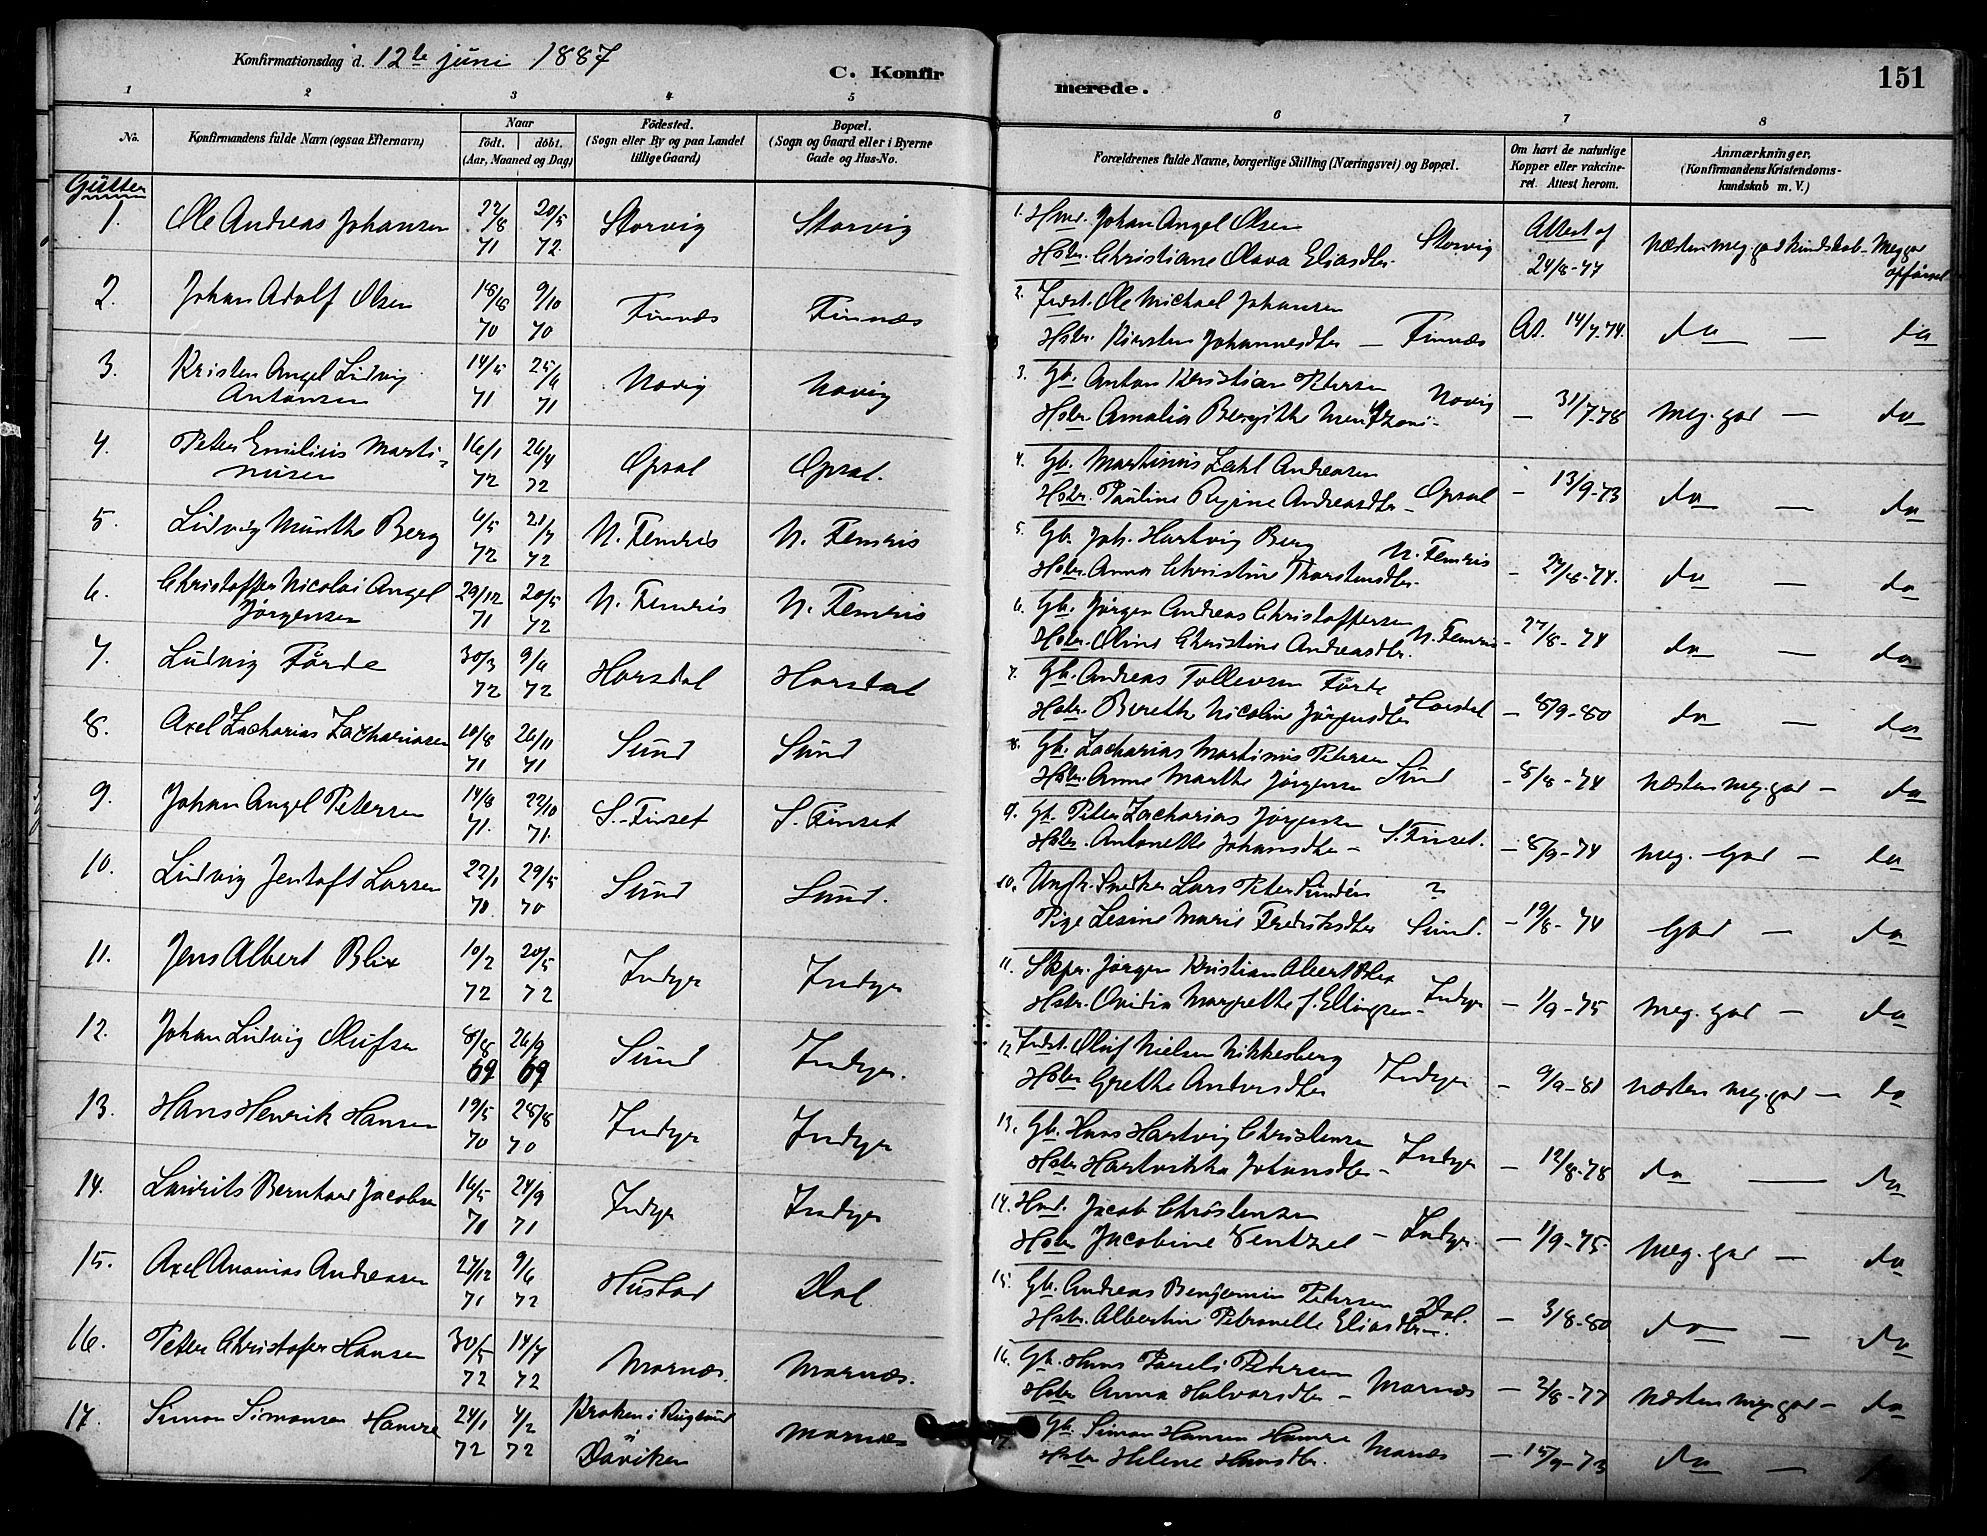 Konfirmationsdag d. 12te juni 1887
C. Konfirmerede.
151
1 2 3 4 5 6 7 8
No.
Konfirmandens fulde Navn (ogsaa Efternavn)
Naar
födt. döbt.
(Aar, Maaned og Dag)
Födested.
(Sogn eller By og paa Landet
tillige Gaard)
Bopæl.
(Sogn og Gaard eller i Byerne
Gade og Hus-No.
Forældrenes fulde Navne, borgerlige Stilling (Næringsvei) og Bopæl.
Om havt de naturlige
Kopper eller vakcine-
ret. Attest herom.
Anmærkninger.
(Konfirmandens Kristendoms-
kundskab m. V.)
Gutter
1. Ole Andreas Johansen 22/8 71 20/5 72 Storvig Storvig
1. Hmd. Johan Angel Olsen
Hstr. Christiane Olava Eliasdtr. Storvig Attest af 24/8-77 Næsten meg. god kundskab - Meg god opførsel
2. Johan Adolf Olsen 18/8 70 9/10 70 Finnæs Finnæs
2. Indst. Ole Michael Johansen
Hstr. Kirsten Johannesdtr - Finnæs At. 14/7-74. do - do
3. Kristen Angel Ludvig
Antonsen 14/5 71 25/6 71 Novig Novig
3. Gb. Anton Kristian Petersen
Hstr. Amalia Bergithe Novig - 31/7-78 Meg. god - do
4. Peter Emilius Marti-
nusen 16/1 72 26/4 72 Opsal Opsal.
4. Gb. Martinus Zahl Andreasen
Hstr. Pauline Regine Andreasdtr - Opsal - 13/9-73 do - do
5. Ludvig Munthe Berg 6/5 72 21/7 72 N. Femris N. Femris
5. Gb. Joh. Hartvig Berg
Hstr. Anna Christine Thorstensdtr. N. Femris - 27/8-74. do - do
6. Christoffer Nicolai Angel
Jørgensen 29/12 71 20/5 72 N. Femris N. Femris
6. Gb. Jørgen Andreas Christoffersen
Hstr. Oline Christine Andreasdtr. N. Femris - 27/8-74 do - do
7. Ludvig Førde 30/3 72 9/9 72 Horsdal Horsdal
7. Gb. Andreas Tollevsen Førde
Hstr. Berethe Nicoline Jørgensdtr Horsdal - 8/9-80 do - do
8. Axel Zacharias Zachariasen 10/8 71 26/11 71 Sund Sund
8. Gb. Zacharias Martinus Petersen
Hstr. Anne Marthe Jørgensen Sund - 8/8-74 Næsten meg. god - do
9. Johan Angel Petersen 14/8 71. 22/10 71. S. Finset S. Finset
9. Gb. Peter Zacharias Jørgensen
Hstr. Antonette Johansdtr - S. Finset. - 8/9-74 Meg. God - do
10. Ludvig Jentoft Larsen 22/1 70 29/5 70 Sund Sund.
10. Ungk. Snedker Lars Peter Sundén ?
Pige Lesine Marie Fredriksdtr Sund. - 19/8-74 God - do
11. Jens Albert Blix 10/2 72 20/5 72 Indyr Indyr
11. Skpr. Jørgen Kristian Albert Blix
Hstr. Ovidia Margrethe f. Ellingsen - Indyr - 1/9-75 Meg. god - do
12. Johan Ludvig Olufsen 8/8 69 26/9 69 Sund Indyr.
12 Indst. Oluf Nielsen Nikkesberg
Hstr Grethe Andersdtr Indyr - 9/9-81 Næsten meg. god - do
13. Hans Henrik Hansen 19/5 70 28/8 70 Indyr Indyr
13. Gb. Hans Hartvig Christensen
Hstr Hartvikka Johansdtr - Indyr - 12/8-78 do - do
14. Laurits Bernhard Jacobsen 16/5 70 24/9 71 Indyr Indyr
14. Hmd. Jacob Christensen
Hstr Jacobine Ventzel - Indyr. - 1/9-75 Meg. god - do
15. Axel Ananias Andreasen 27/12 71 9/6 72 Hustad Dal
15. Gb. Andreas Benjamin Petersen
Hstr. Albertine Petronelle Eliasdtr. Dal. - 3/8-80 do - do
16. Peter Christofer Hansen 30/5 72 14/7 72 Mornæs. Mornæs.
16. Gb. Hans Pareli Petersen
Hstr Anna Halvorsdtr - Mornæs - 2/8-77 Næsten meg. god - do
17. Simon Simonsen Hamre 24/1 72 4/2 72 Kroken i Rugsund Daviken Mornæs
17. Gb. Simon Hansen Hamre
Hstr Helene Hansdtr. Mornæs - 15/9-73 do -